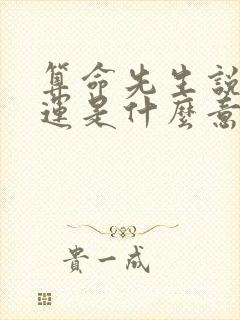 算命先生說
運是什麼意
貴一成